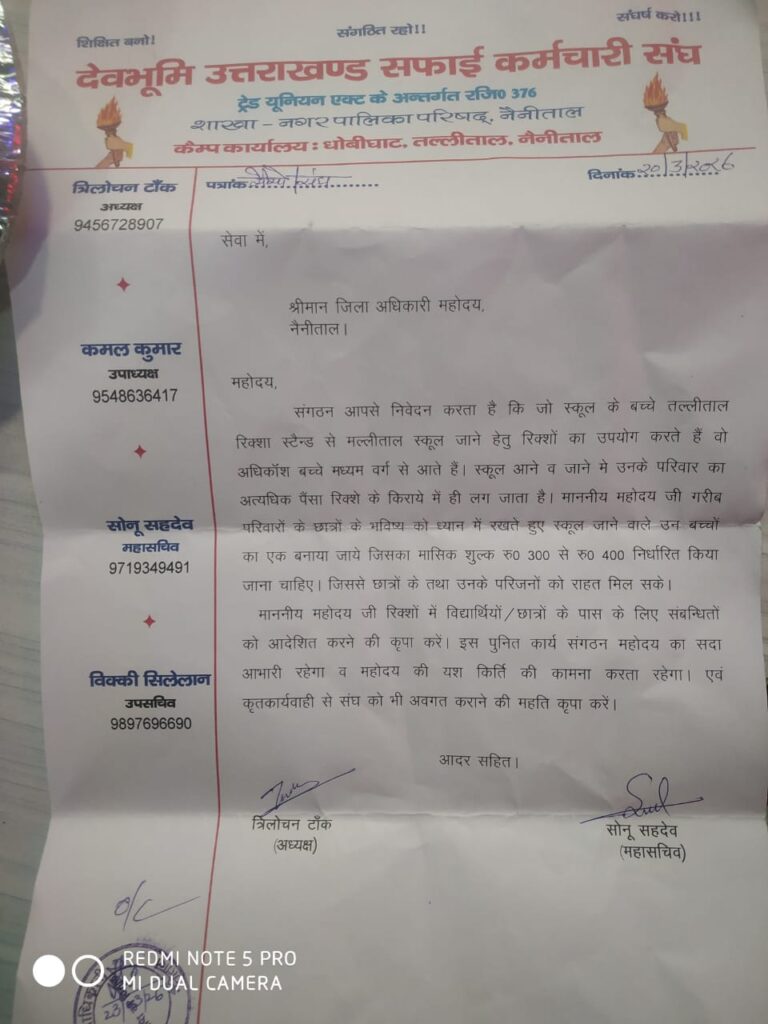 शिक्षित बनो! संगठित रहो!! संघर्ष करो!!!
देवभूमि उत्तराखण्ड सफाई कर्मचारी संघ
ट्रेड यूनियन एक्ट के अन्तर्गत रजि0 376
शाखा - नगर पालिका परिषद्, नैनीताल
कैम्प कार्यालय : धोबीघाट, तल्लीताल, नैनीताल
पत्रांक.................... दिनांक 20/3/2026
त्रिलोचन टाँक
अध्यक्ष
9456728907
कमल कुमार
उपाध्यक्ष
9548636417
सोनू सहदेव
महासचिव
9719349491
विक्की सिलेलान
उपसचिव
9897696690
सेवा में,
श्रीमान जिला अधिकारी महोदय,
नैनीताल।
महोदय,
संगठन आपसे निवेदन करता है कि जो स्कूल के बच्चे तल्लीताल
रिक्शा स्टैन्ड से मल्लीताल स्कूल जाने हेतु रिक्शों का उपयोग करते हैं वो
अधिकॉश बच्चे मध्यम वर्ग से आते हैं। स्कूल आने व जाने मे उनके परिवार का
अत्यधिक पैंसा रिक्शे के किराये में ही लग जाता है। माननीय महोदय जी गरीब
परिवारों के छात्रों के भविष्य को ध्यान में रखते हुए स्कूल जाने वाले उन बच्चों
का एक बनाया जाये जिसका मासिक शुल्क रु0 300 से रु0 400 निर्धारित किया
जाना चाहिए। जिससे छात्रों के तथा उनके परिजनों को राहत मिल सके।
माननीय महोदय जी रिक्शों में विद्यार्थियों/छात्रों के पास के लिए संबन्धितों
को आदेशित करने की कृपा करें। इस पुनित कार्य संगठन महोदय का सदा
आभारी रहेगा व महोदय की यश किर्ति की कामना करता रहेगा। एवं
कृतकार्यवाही से संघ को भी अवगत कराने की महति कृपा करें।
आदर सहित।
त्रिलोचन टाँक
(अध्यक्ष)
सोनू सहदेव
(महासचिव)
o/c
23/3/26
REDMI NOTE 5 PRO
MI DUAL CAMERA